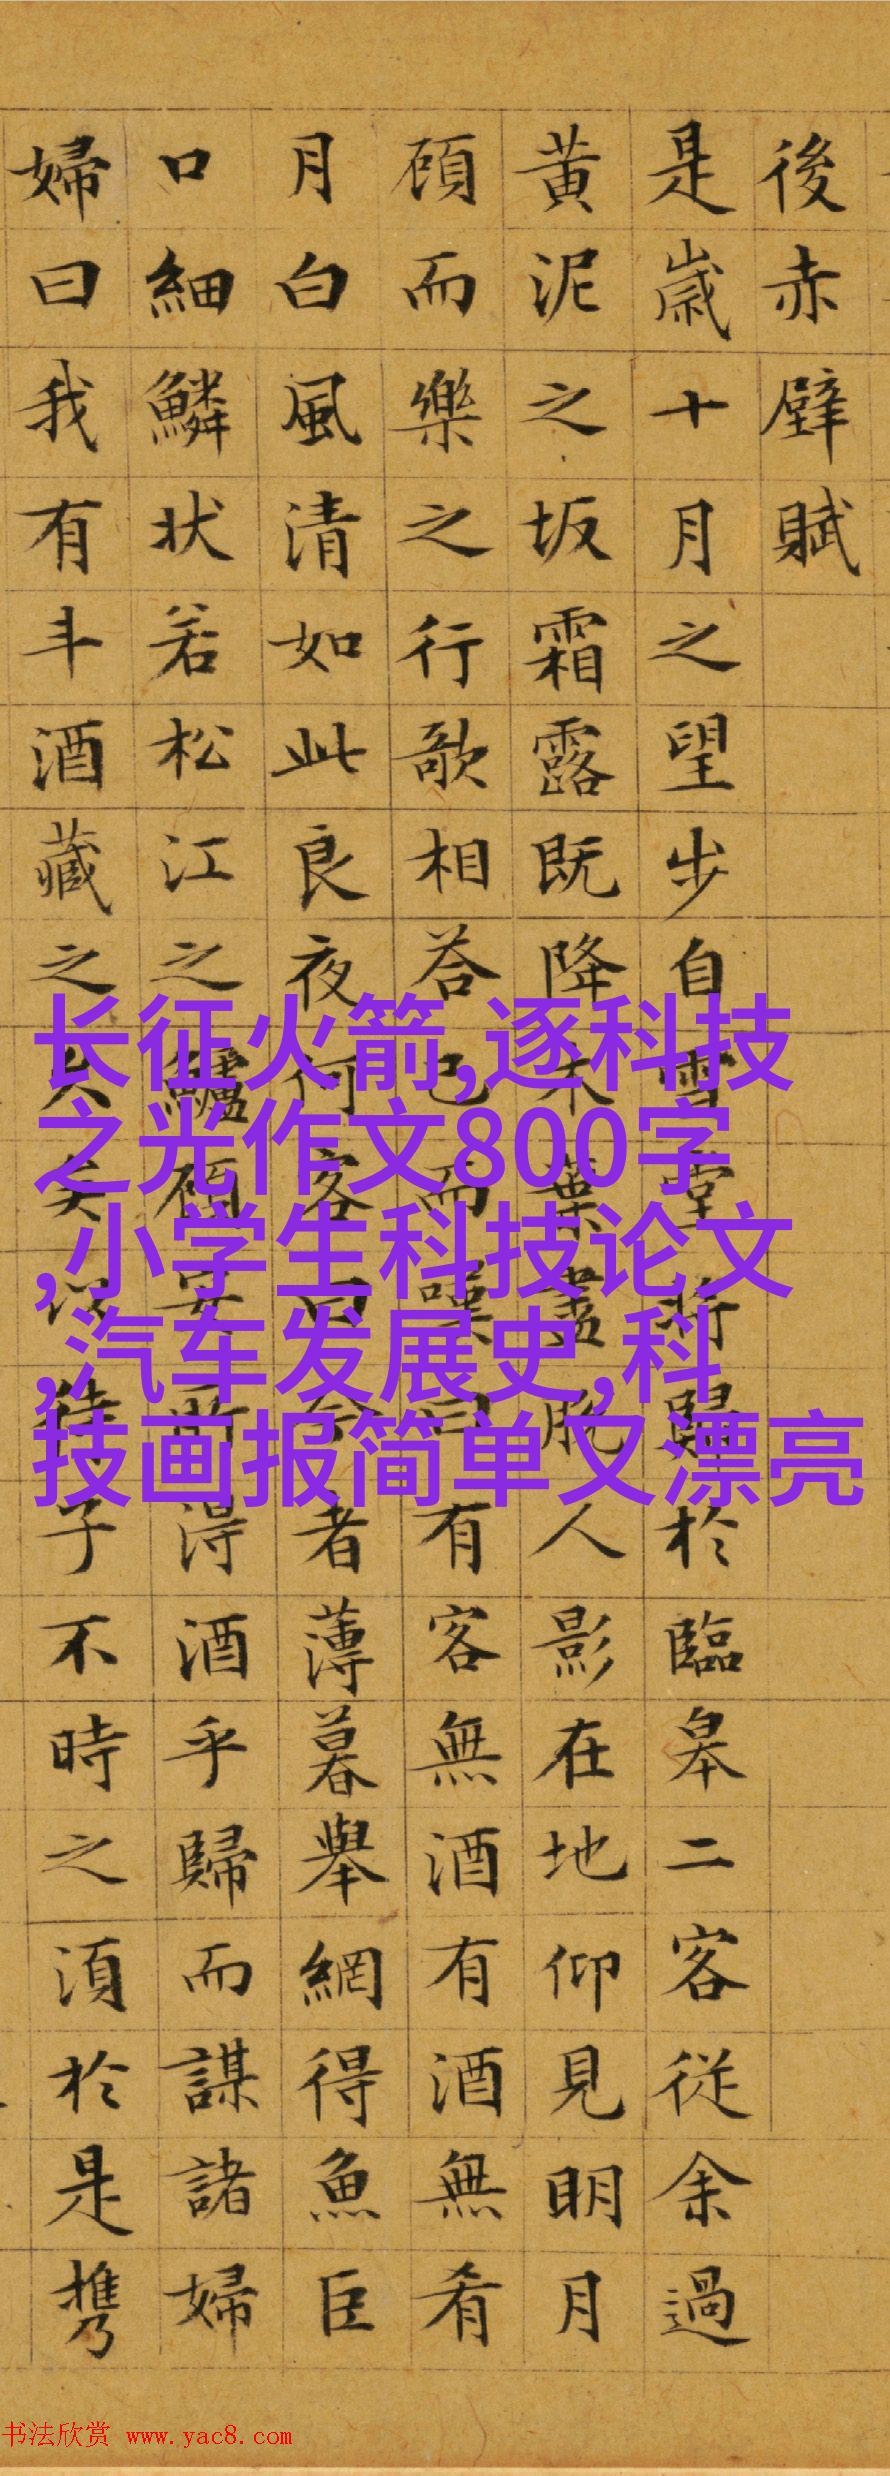 後赤壁賦
是歲十月之望步自雪堂將歸於臨皋二客從余過
黄泥之坂霜露既降木葉盡脫人影在地仰見明月
頋而樂之行歌相荅已而嘆曰有客無酒有酒無肴
月白風清如此良夜何客曰今者薄暮舉網得魚巨
口細鱗状若松江之鱸頋安所得酒乎歸而謀諸婦
婦曰我有斗酒藏之久矣以待子不時之須於是携
长征火箭,逐科技
之光作文800字
,小学生科技论文
,汽车发展史,科
技画报简单又漂亮
书法欣赏 www.yac8.com